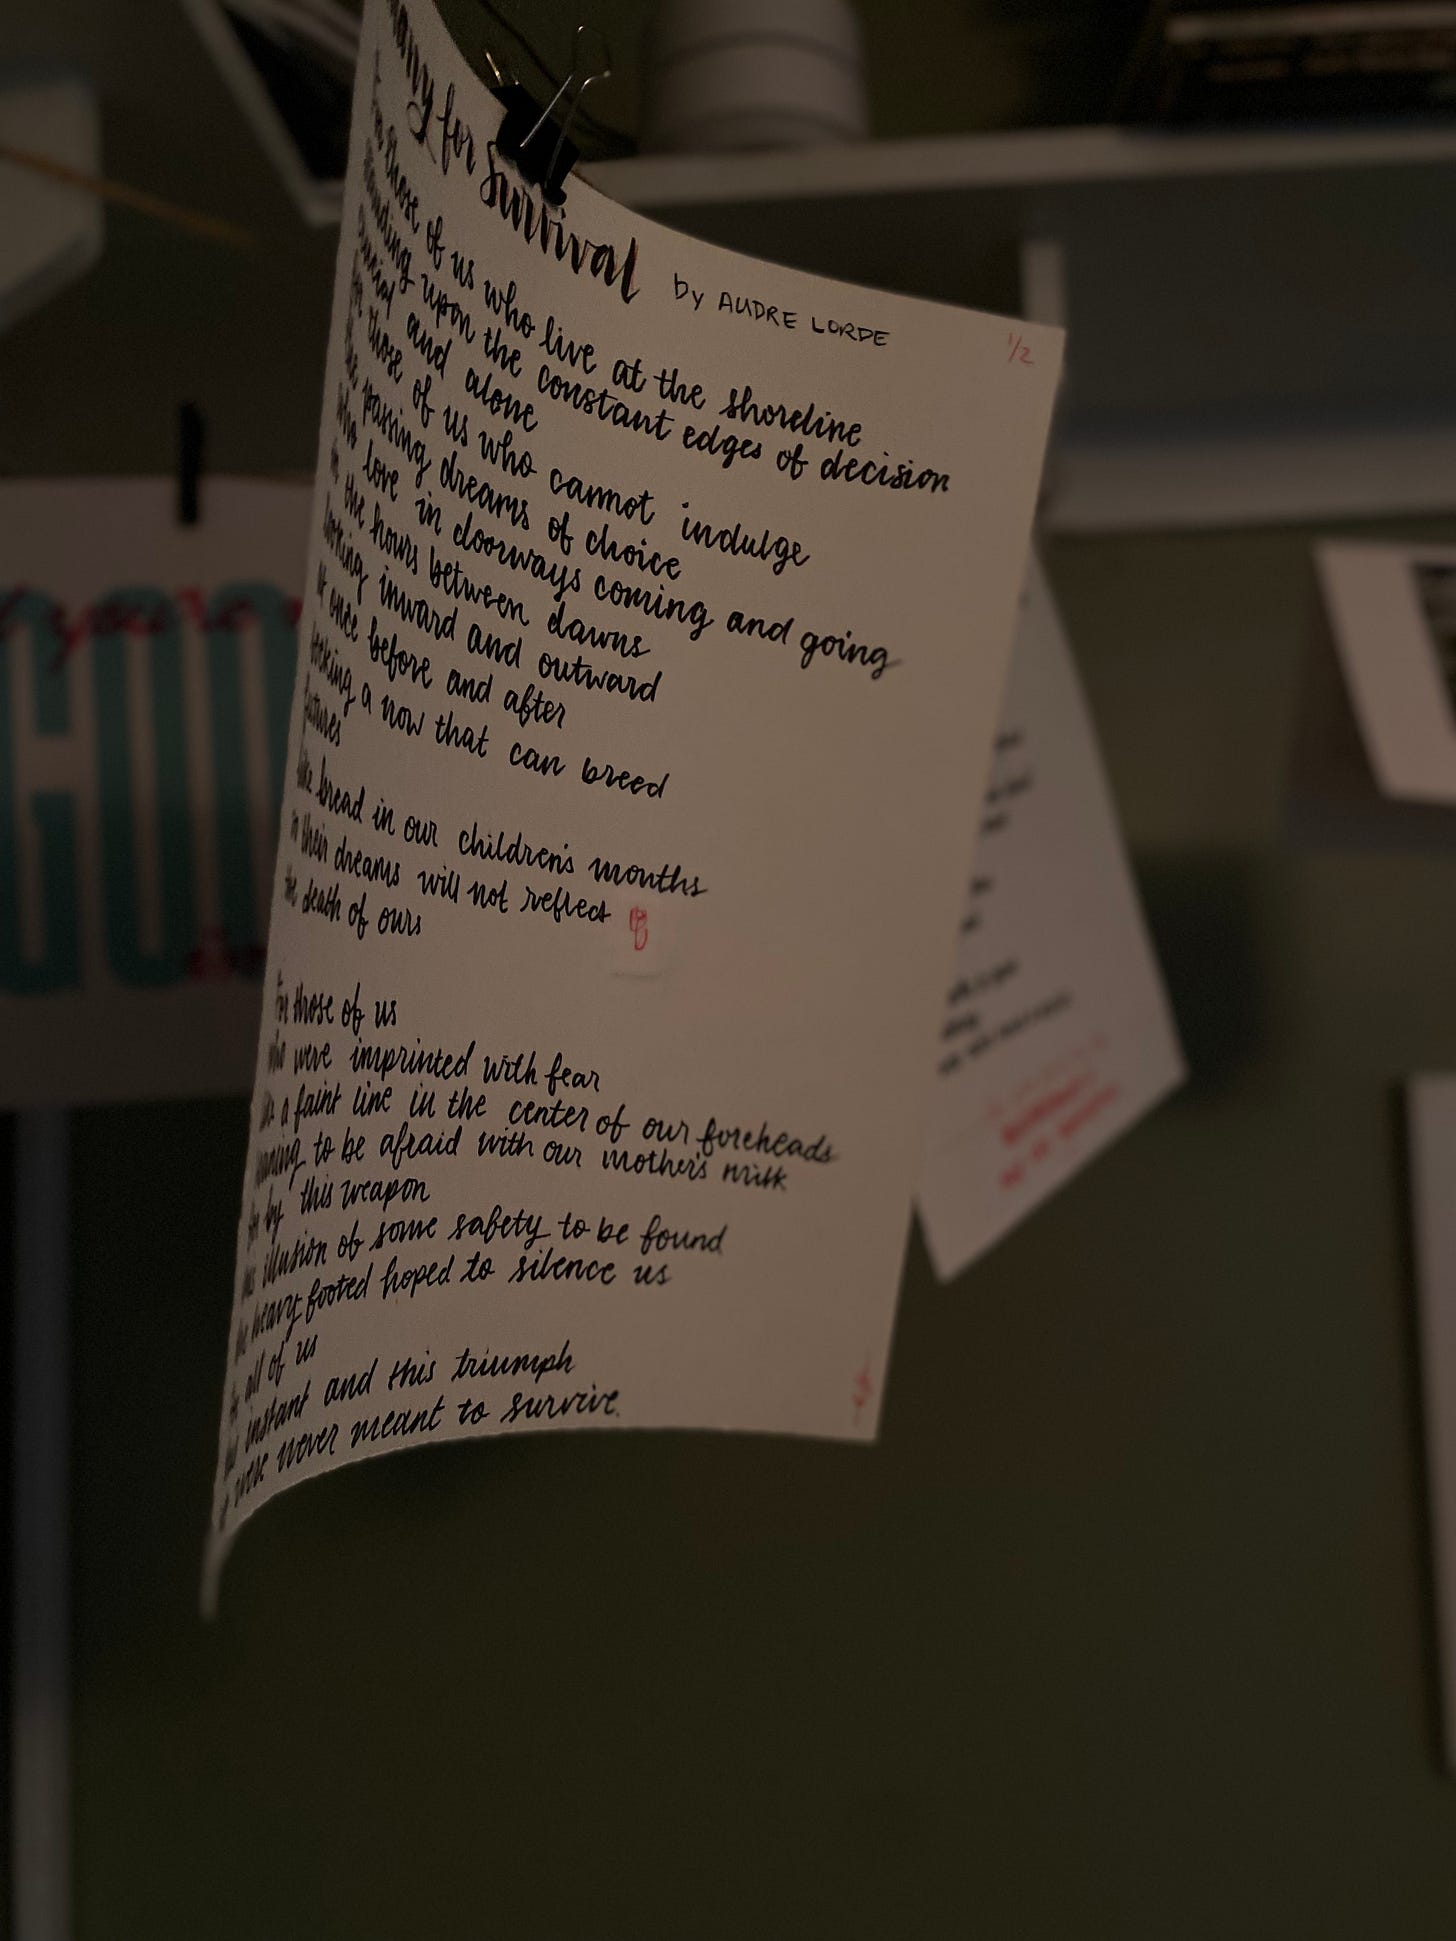 for Survival by AUDRE LORDE 1/2
For those of us who live at the shoreline
standing upon the constant edges of decision
crucial and alone
for those of us who cannot indulge
the passing dreams of choice
who love in doorways coming and going
in the hours between dawns
looking inward and outward
at once before and after
seeking a now that can breed
futures
like bread in our children's mouths
in their dreams will not reflect
the death of ours
For those of us
who were imprinted with fear
like a faint line in the center of our foreheads
learning to be afraid with our mother's milk
for by this weapon
this illusion of some safety to be found
the heavy footed hoped to silence us
For all of us
this instant and this triumph
were never meant to survive.